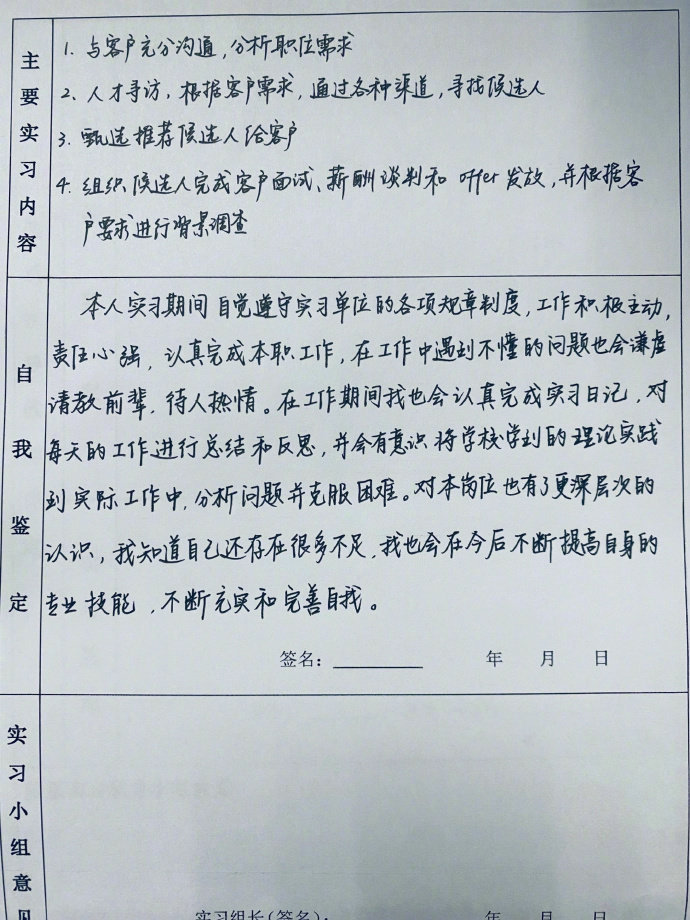 主要实习内容
1. 与客户充分沟通，分析职位需求
2、人才寻访，根据客户需求，通过各种渠道，寻找候选人
3. 甄选推荐候选人给客户
4. 组织候选人完成客户面试、薪酬谈判和offer发放，并根据客
户要求进行背景调查
自我鉴定
本人实习期间自觉遵守实习单位的各项规章制度，工作积极主动，
责任心强，认真完成本职工作，在工作中遇到不懂的问题也会谦虚
请教前辈，待人热情。在工作期间我也会认真完成实习日记，对
每天的工作进行总结和反思，并会有意识将学校学到的理论实践
到实际工作中，分析问题并克服困难。对本岗位也有了更深层次的
认识，我知道自己还存在很多不足，我也会在今后不断提高自身的
专业技能，不断充实和完善自我。
签名：________ 年 月 日
实习小组意见
实习组长（签名）： 年 月 日